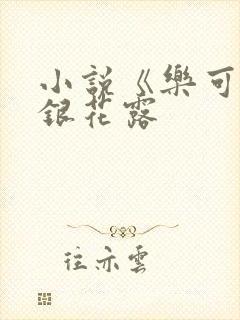 小説《樂可
銀花露
往亦雲